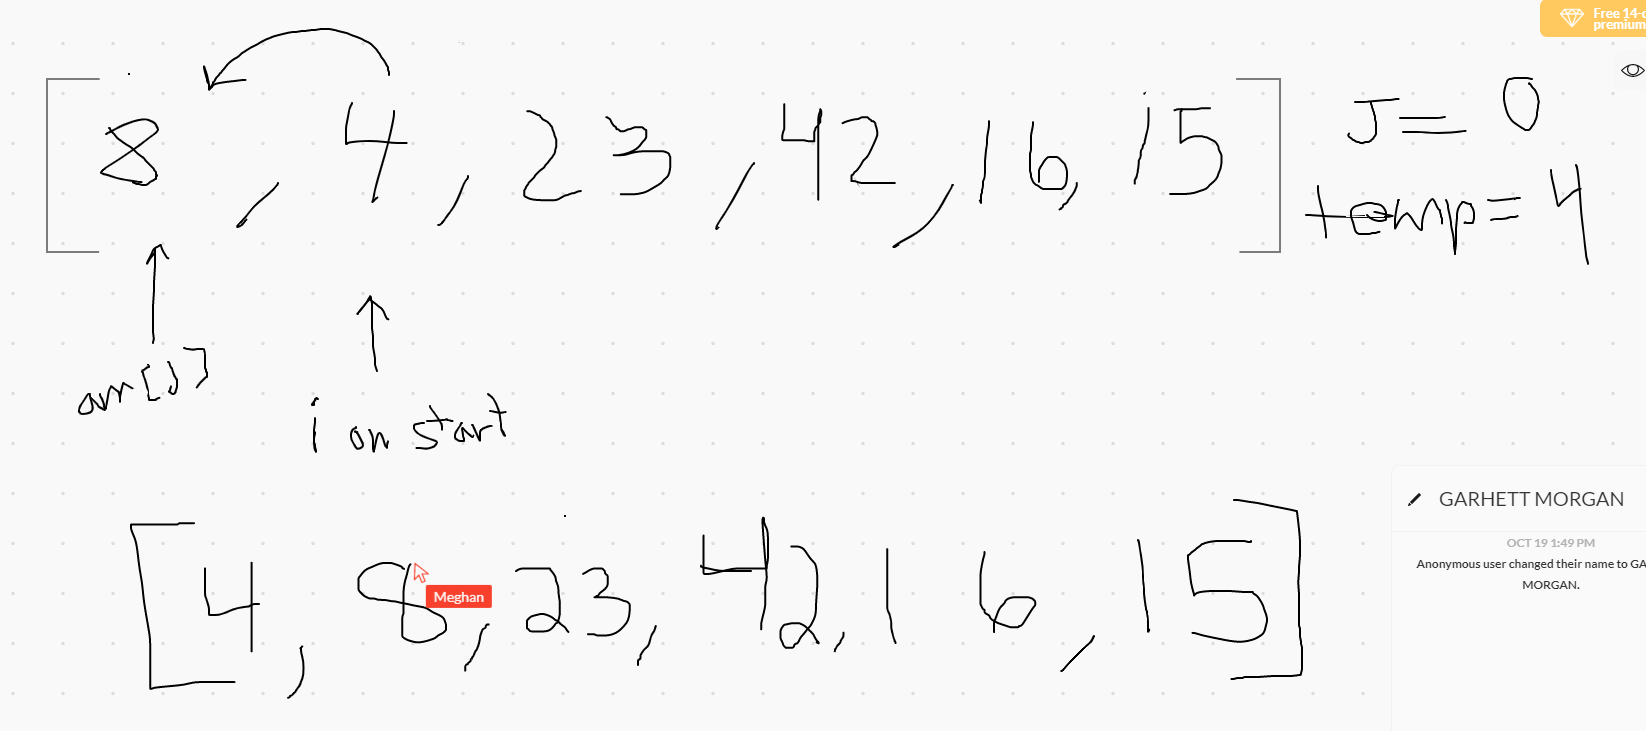 Free 14-d
premium
[8, 4, 23, 42, 16, 15]
J = 0
temp = 4
arr[J]
i on start
[4, 8, 23, 42, 16, 15]
Meghan
GARHETT MORGAN
OCT 19 1:49 PM
Anonymous user changed their name to GA
MORGAN.